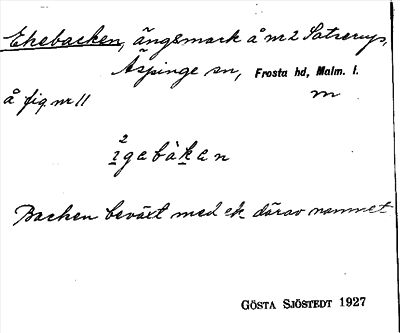 Ekebacken, ängsmark å nr 2 Satserup,
Äspinge sn, Frosta hd, Malm. l.
å fig nr 11 m
2
ı̱gabàḵan
Backen beväxt med ek därav namnet
GÖSTA SJÖSTEDT 1927